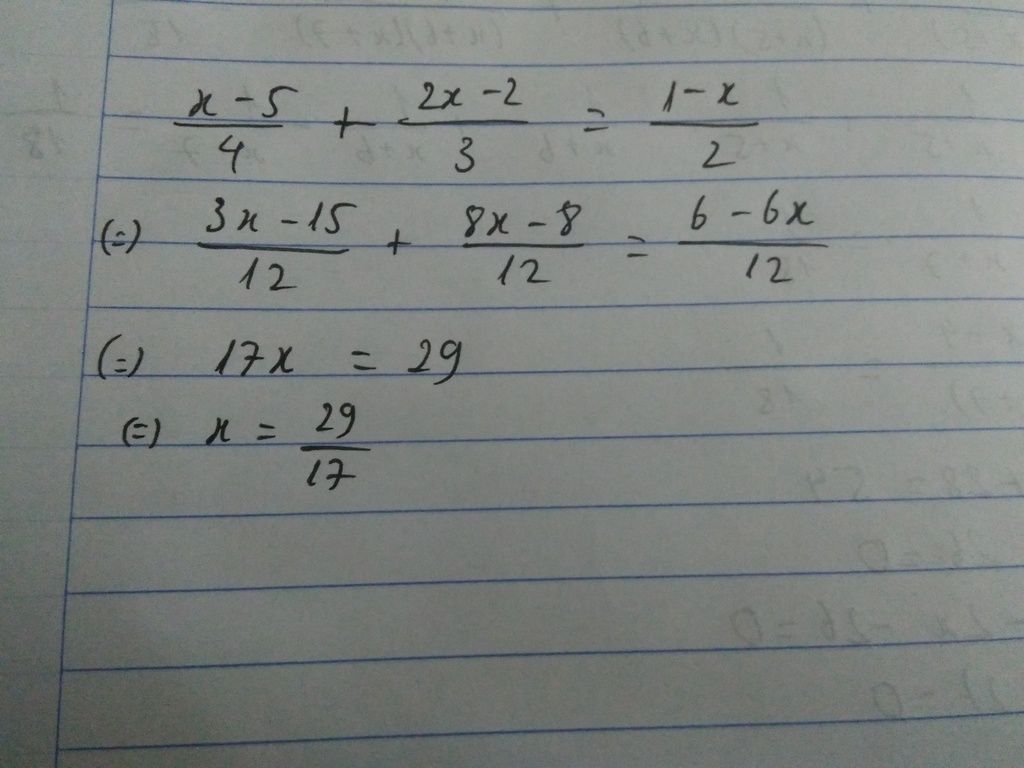 x - 5 / 4 + 2x - 2 / 3 = 1 - x / 2
(=) 3x - 15 / 12 + 8x - 8 / 12 = 6 - 6x / 12
(=) 17x = 29
(=) x = 29 / 17